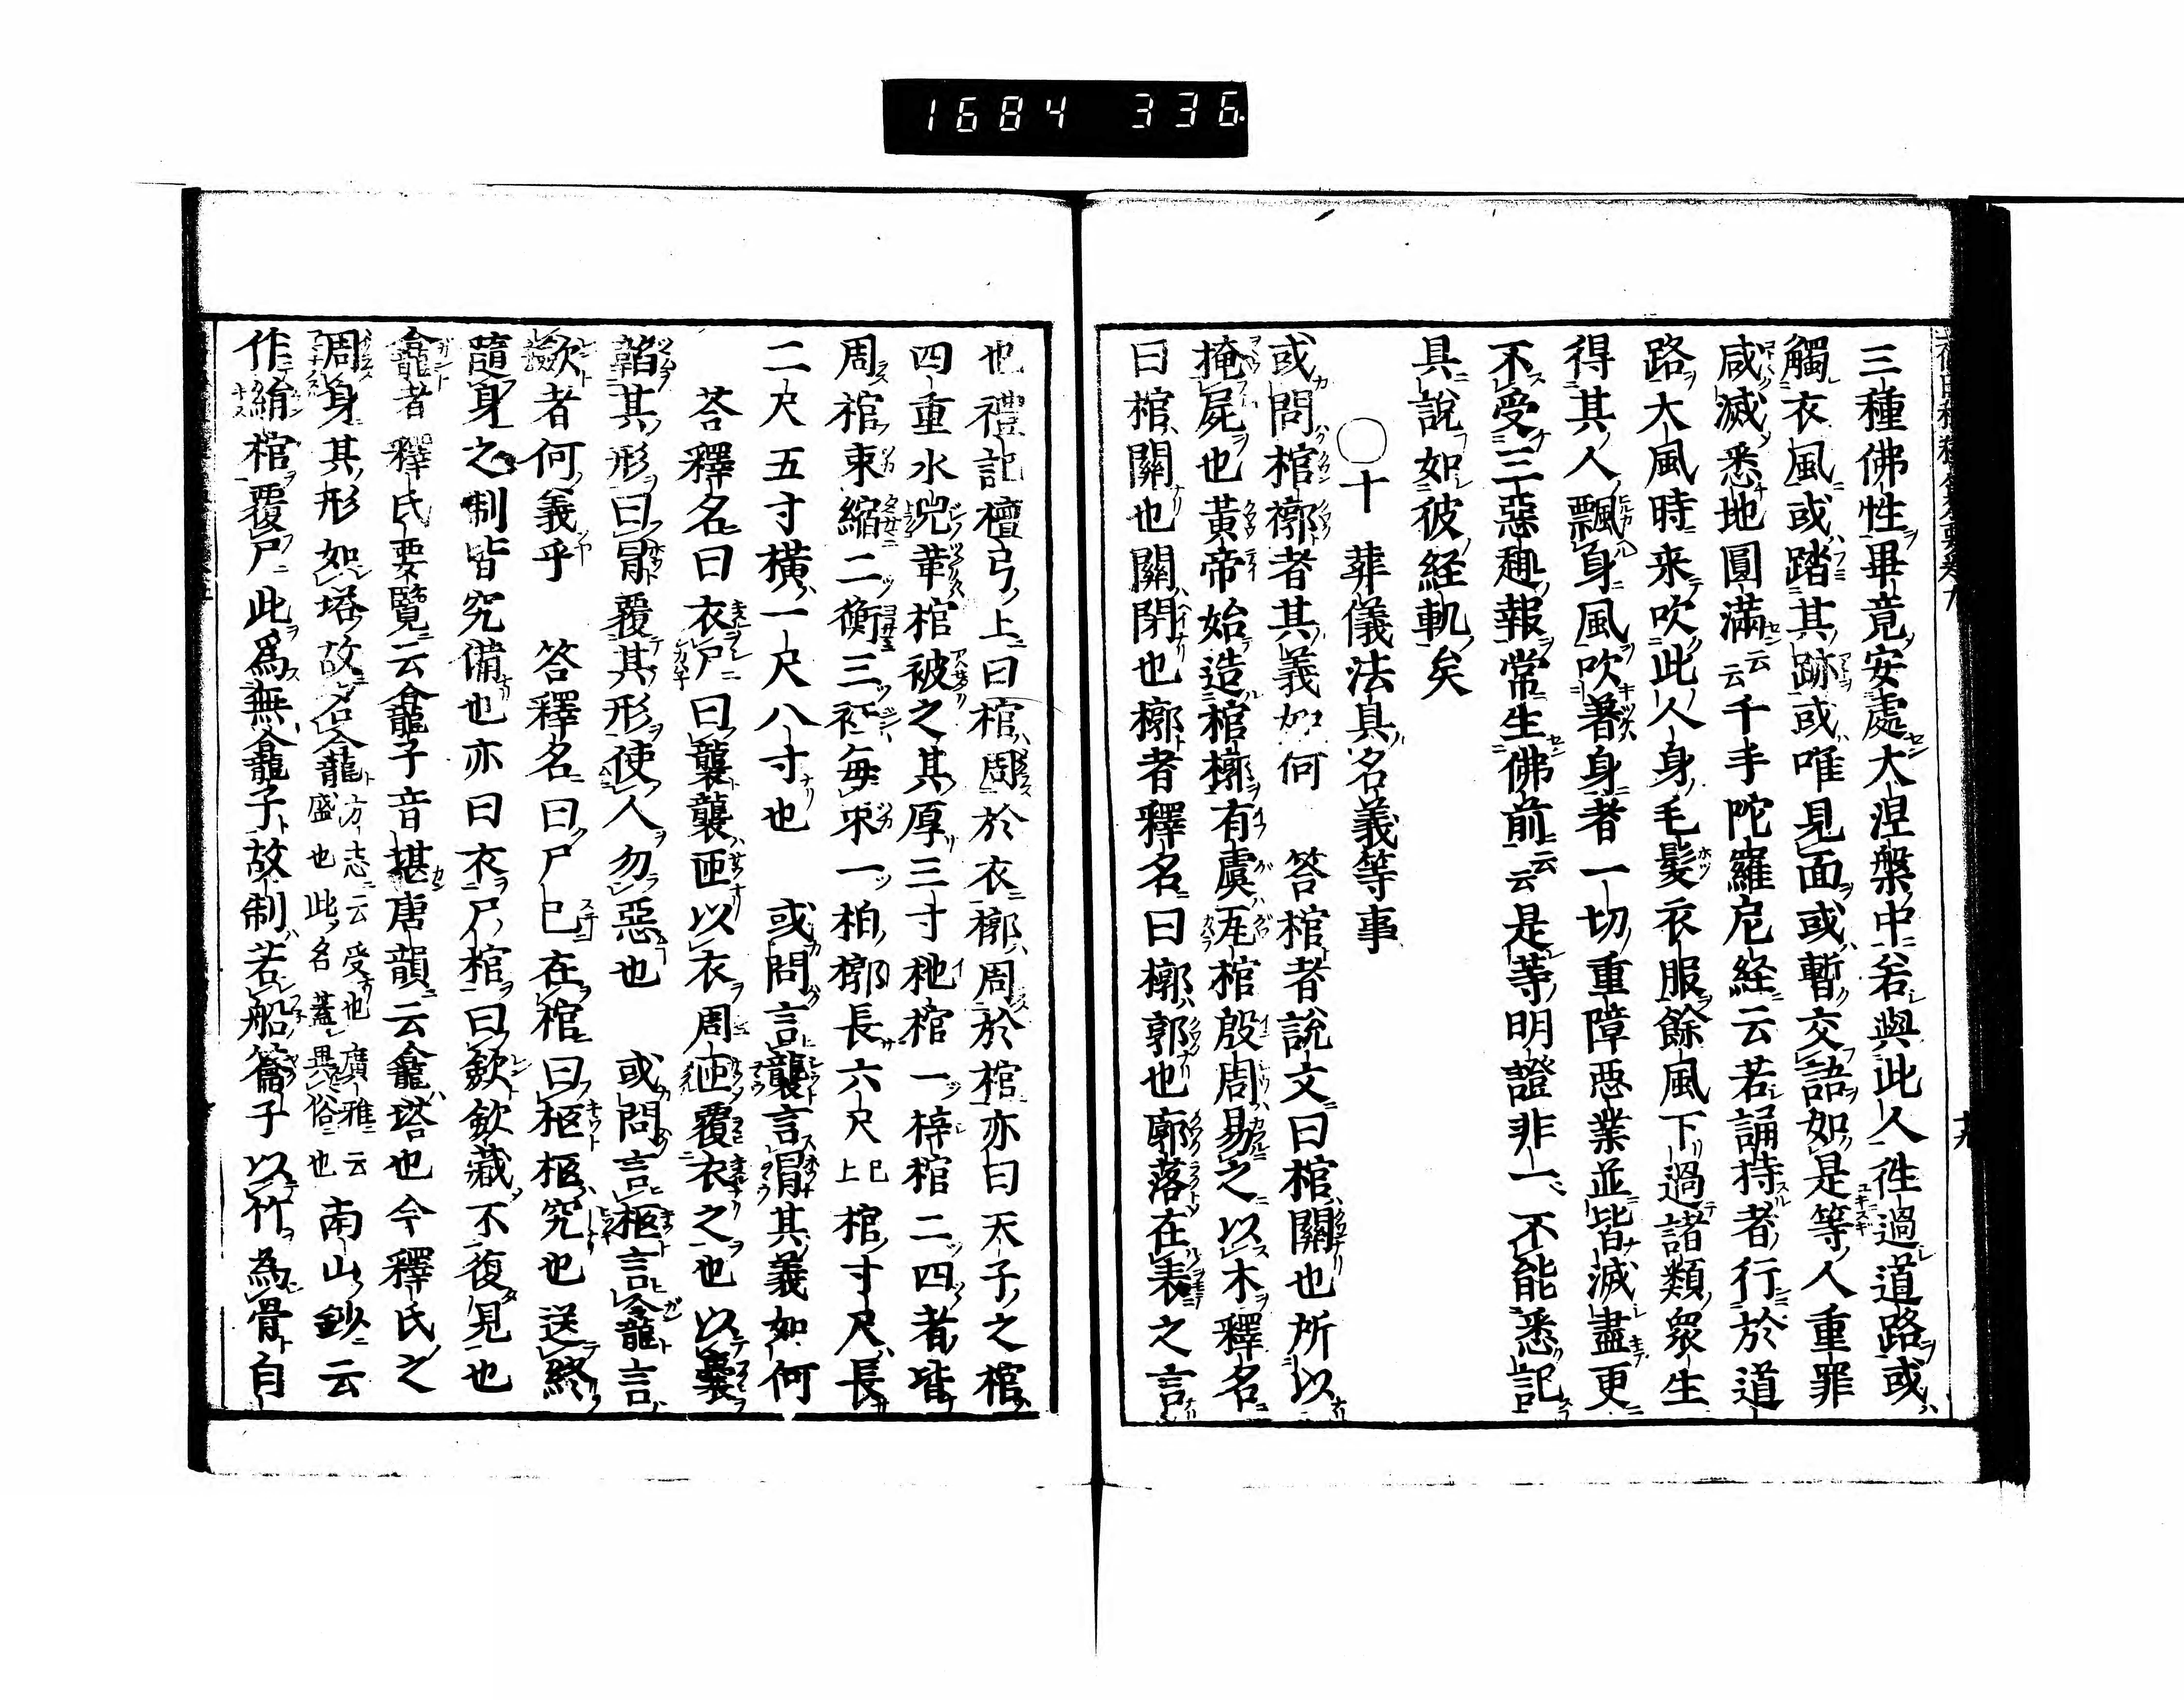 1684 336
三種佛性畢竟安處大涅槃中若與此人徃過道路或
觸衣風或踏其跡或唯見面或暫交語如是等人重罪
咸滅悉地圓滿云云千手陀羅尼経云若誦持者行於道
路大風時来吹此人身毛髮衣服餘風下過諸類衆生
得其人飄身風吹著身者一切重障惡業並皆滅盡更
不受三惡趣報常生佛前云云是等明證非一不能悉記
具說如彼経軌矣
〇十 葬儀法具名義等事
或問棺槨者其義如何 答棺者說文曰棺關也所以
掩屍也黃帝始造棺槨有虞瓦棺殷周易之以木釋名
曰棺關也關閉也槨者釋名曰槨郭也廓落在表之言
也禮記檀弓上曰棺周於衣槨周於棺亦曰天子之棺
四重水兕革棺被之其厚三寸杝棺一梓棺二四者皆
周棺束縮二衡三衽每束一柏槨長六尺已上棺寸尺長
二尺五寸橫一尺八寸也 或問言襲言冒其義如何
答釋名曰衣尸曰襲襲匝以衣周匝覆衣之也以囊
韜其形曰冒覆其形使人勿惡也 或問言柩言龕言
斂者何義乎 答釋名曰尸已在棺曰柩柩究也送終
隨身之制皆究備也亦曰衣尸棺曰斂斂藏不復見也
龕者釋氏要覽云龕子音堪唐韻云龕塔也今釋氏之
周身其形如塔故名龕方志云受也廣雅云盛也此名蓋異俗也南山鈔云
作絹棺覆尸此爲無龕子故制若船篇子以竹為骨自